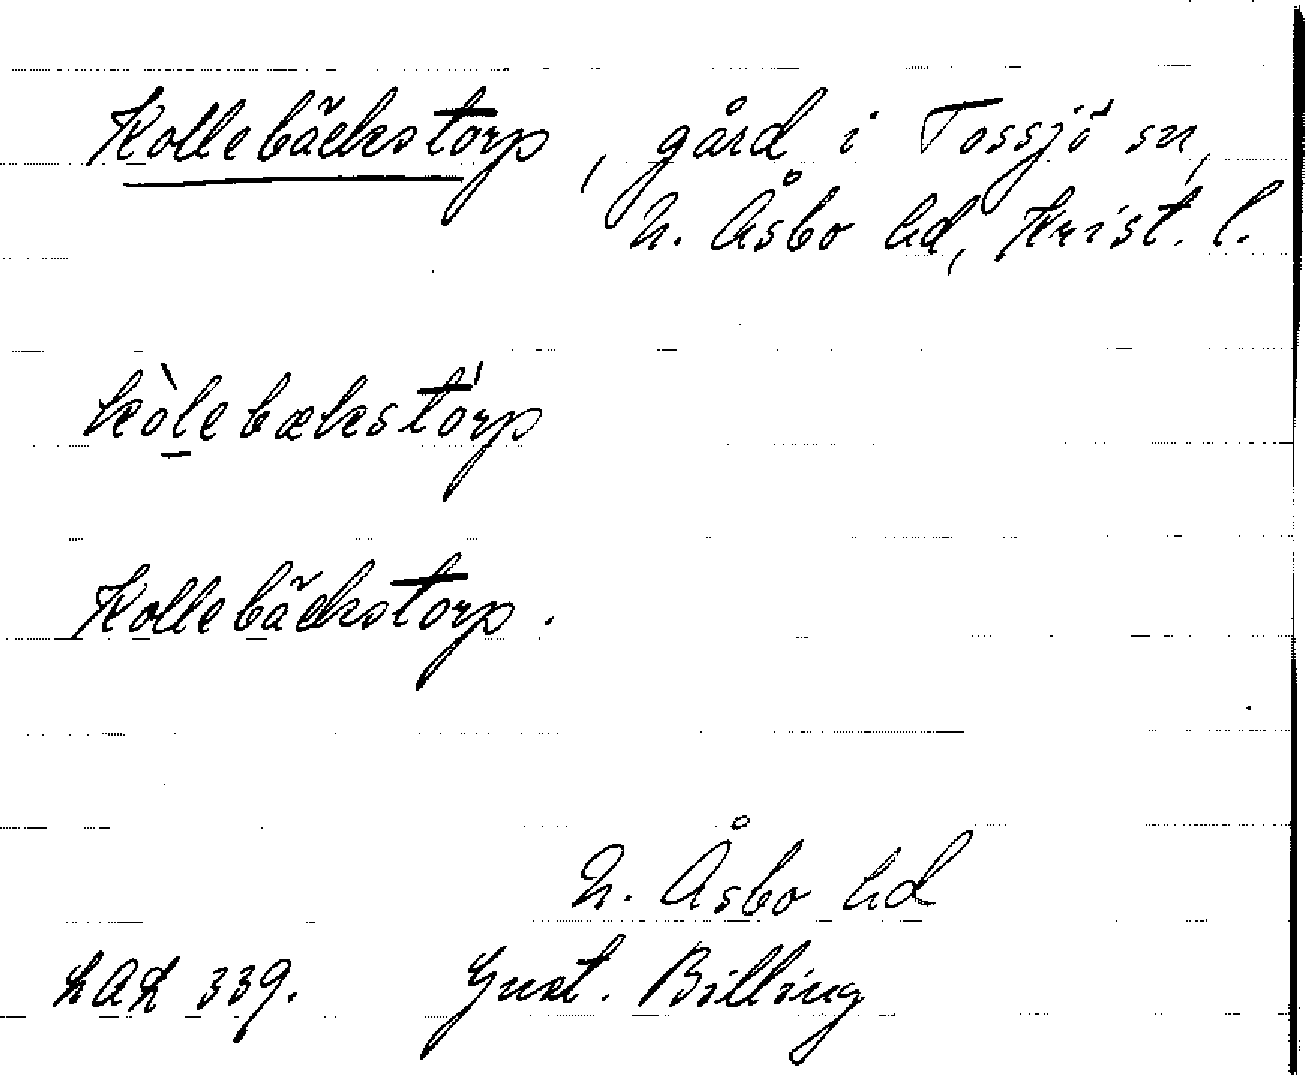 Kollebäckstorp, gård i Tossjö sn,
N. Åsbo hd, Krist. l.
kòlebækstórp
Kollebäckstorp.
N. Åsbo hd
LAL 339. Gust. Billing